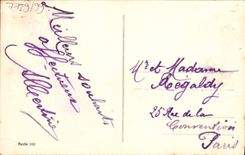 Meilleurs souhaits
affectueux
Albertine
Mr et Madame
Regaldy
25 Rue de la
Convention
Paris